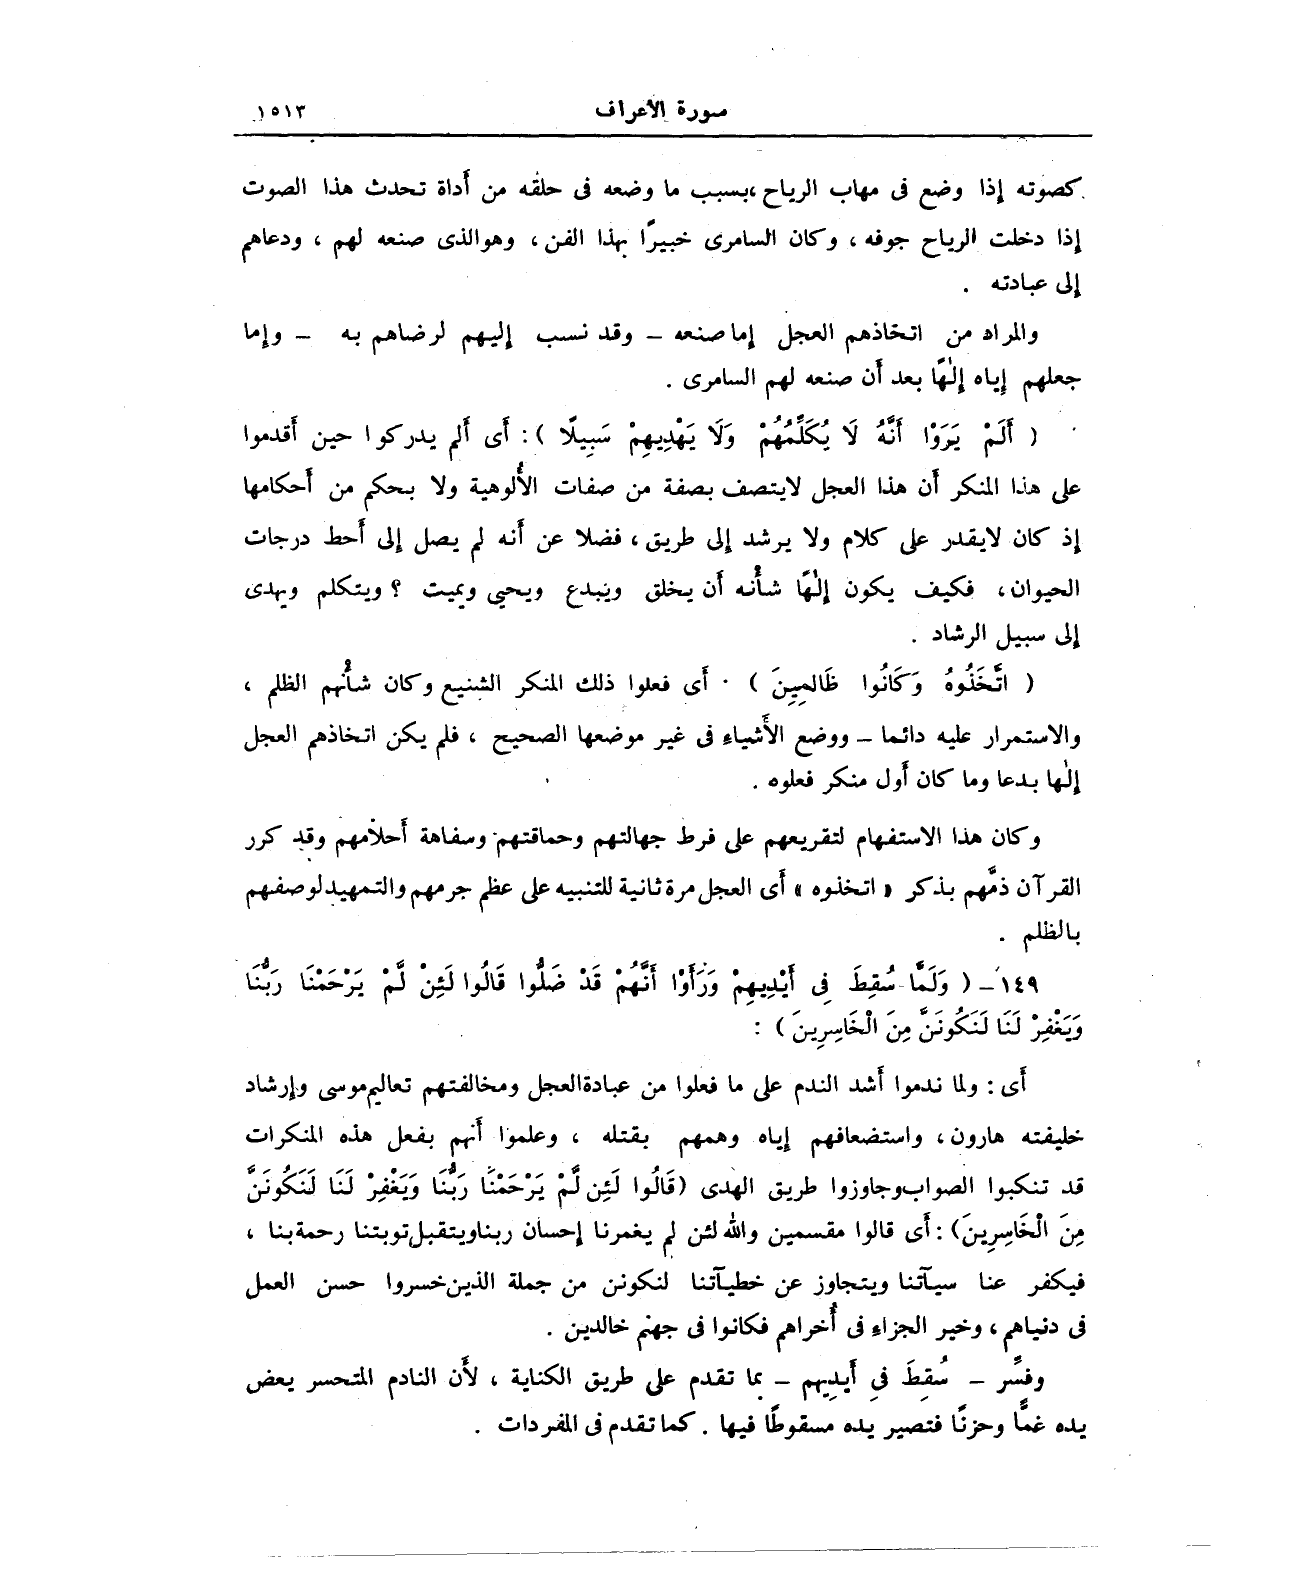 سورة الأعراف ١٥١٣
كصوته إذا وضع فى مهاب الرياح ،بسبب ما وضعه فى حلقه من أداة تحدث هذا الصوت
إذا دخلت الرياح جوفه ، وكان السامرى خبيرًا بهذا الفن ، وهوالذى صنعه لهم ، ودعاهم
إلى عبادته .
والمراد من اتخاذهم العجل إما صنعه – وقد نسب إليهم لرضاهم به – وإما
جعلهم إياه إلٰهًا بعد أن صنعه لهم السامرى .
( أَلَمْ يَرَوْا أَنَّهُ لَا يُكَلِّمُهُمْ وَلَا يَهْدِيهِمْ سَبِيلًا ) : أى ألم يدركوا حين أقدموا
على هذا المنكر أن هذا العجل لايتصف بصفة من صفات الأُلوهية ولا بحكم من أحكامها
إذ كان لايقدر على كلام ولا يرشد إلى طريق ، فضلا عن أنه لم يصل إلى أحط درجات
الحيوان ، فكيف يكون إلٰهًا شأْنه أن يخلق ويبدع ويحيى ويميت ؟ ويتكلم ويهدى
إلى سبيل الرشاد .
( اتَّخَذُوهُ وَكَانُوا ظَالِمِينَ ) · أى فعلوا ذلك المنكر الشنيع وكان شأْنهم الظلم ،
والاستمرار عليه دائما – ووضع الأَشياءِ فى غير موضعها الصحيح ، فلم يكن اتخاذهم العجل
إلٰها بدعا وما كان أول منكر فعلوه .
وكان هذا الاستفهام لتقريعهم على فرط جهالتهم وحماقتهم وسفاهة أحلامهم وقد كرر
القرآن ذمَّهم بذكر « اتخذوه » أى العجل مرة ثانية للتنبيه على عظم جرمهم والتمهيد لوصفهم
بالظلم .
١٤٩ – ( وَلَمَّا سُقِطَ فِى أَيْدِيهِمْ وَرَأَوْا أَنَّهُمْ قَدْ ضَلُّوا قَالُوا لَئِنْ لَّمْ يَرْحَمْنَا رَبُّنَا
وَيَغْفِرْ لَنَا لَنَكُونَنَّ مِنَ الْخَاسِرِينَ ) :
أى : ولما ندموا أشد الندم على ما فعلوا من عبادة العجل ومخالفتهم تعاليم موسى وإرشاد
خليفته هارون ، واستضعافهم إياه وهمهم بقتله ، وعلموا أنهم بفعل هذه المنكرات
قد تنكبوا الصواب وجاوزوا طريق الهدى (قَالُوا لَئِن لَّمْ يَرْحَمْنَا رَبُّنَا وَيَغْفِرْ لَنَا لَنَكُونَنَّ
مِنَ الْخَاسِرِينَ) : أى قالوا مقسمين والله لئن لم يغمرنا إحسان ربنا ويتقبل توبتنا رحمة بنا ،
فيكفر عنا سيآتنا ويتجاوز عن خطيآتنا لنكونن من جملة الذين خسروا حسن العمل
فى دنياهم ، وخير الجزاءِ فى أُخراهم فكانوا فى جهنم خالدين .
وفسِّر – سُقِطَ فِى أَيدِيهم – بما تقدم على طريق الكناية ، لأَن النادم المتحسر يعض
يده غمًّا وحزنًا فتصير يده مسقوطًا فيها . كما تقدم فى المفردات .